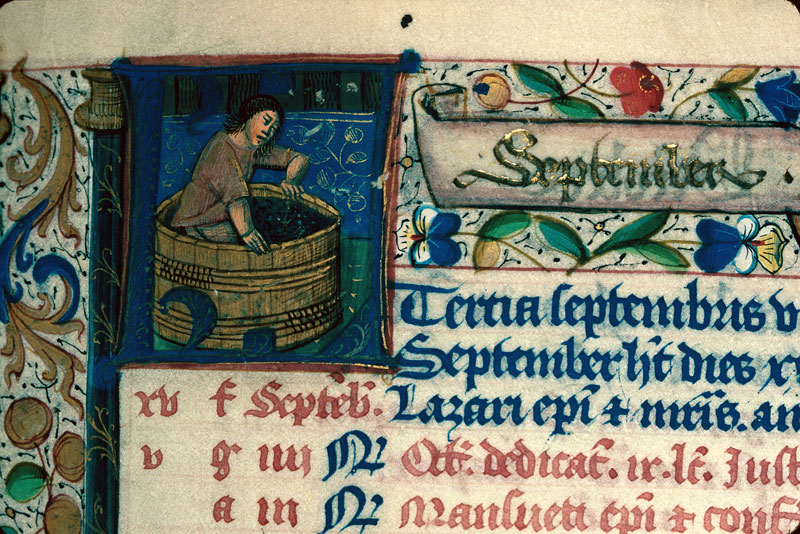 September
Tertia septembris v
September ht dies xx
xv f Septeb. Lazari epi & mris. an
v g iiii Nr Oct. dedicat. ix. lc. Just
a iii Nr Mansueti epi & conf